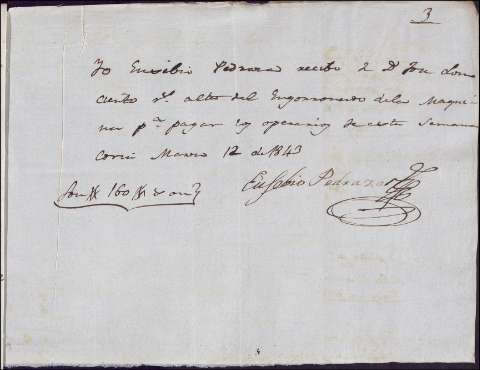 3
Yo Eusebio Pedraza recibo 2 Dn Jose
ciento rs. alto del Engomonado de la Maqui
na pa. pagar los operarios de esta Semana
Coria Marzo 12 de 1843
Son 160 rs
Eusebio Pedraza